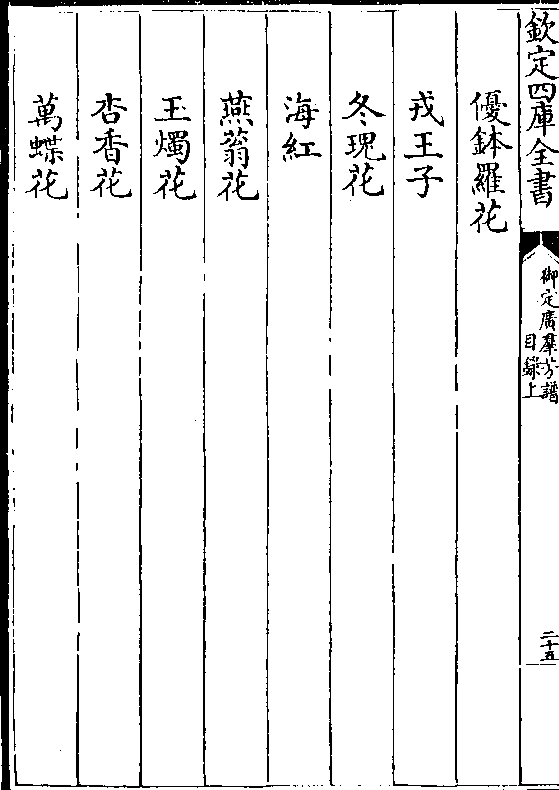 欽定四庫全書
御定廣羣芳譜
目錄上
二十五
優鉢羅花
戎王子
冬瑰花
海紅
燕蓊花
玉燭花
杏香花
萬蝶花